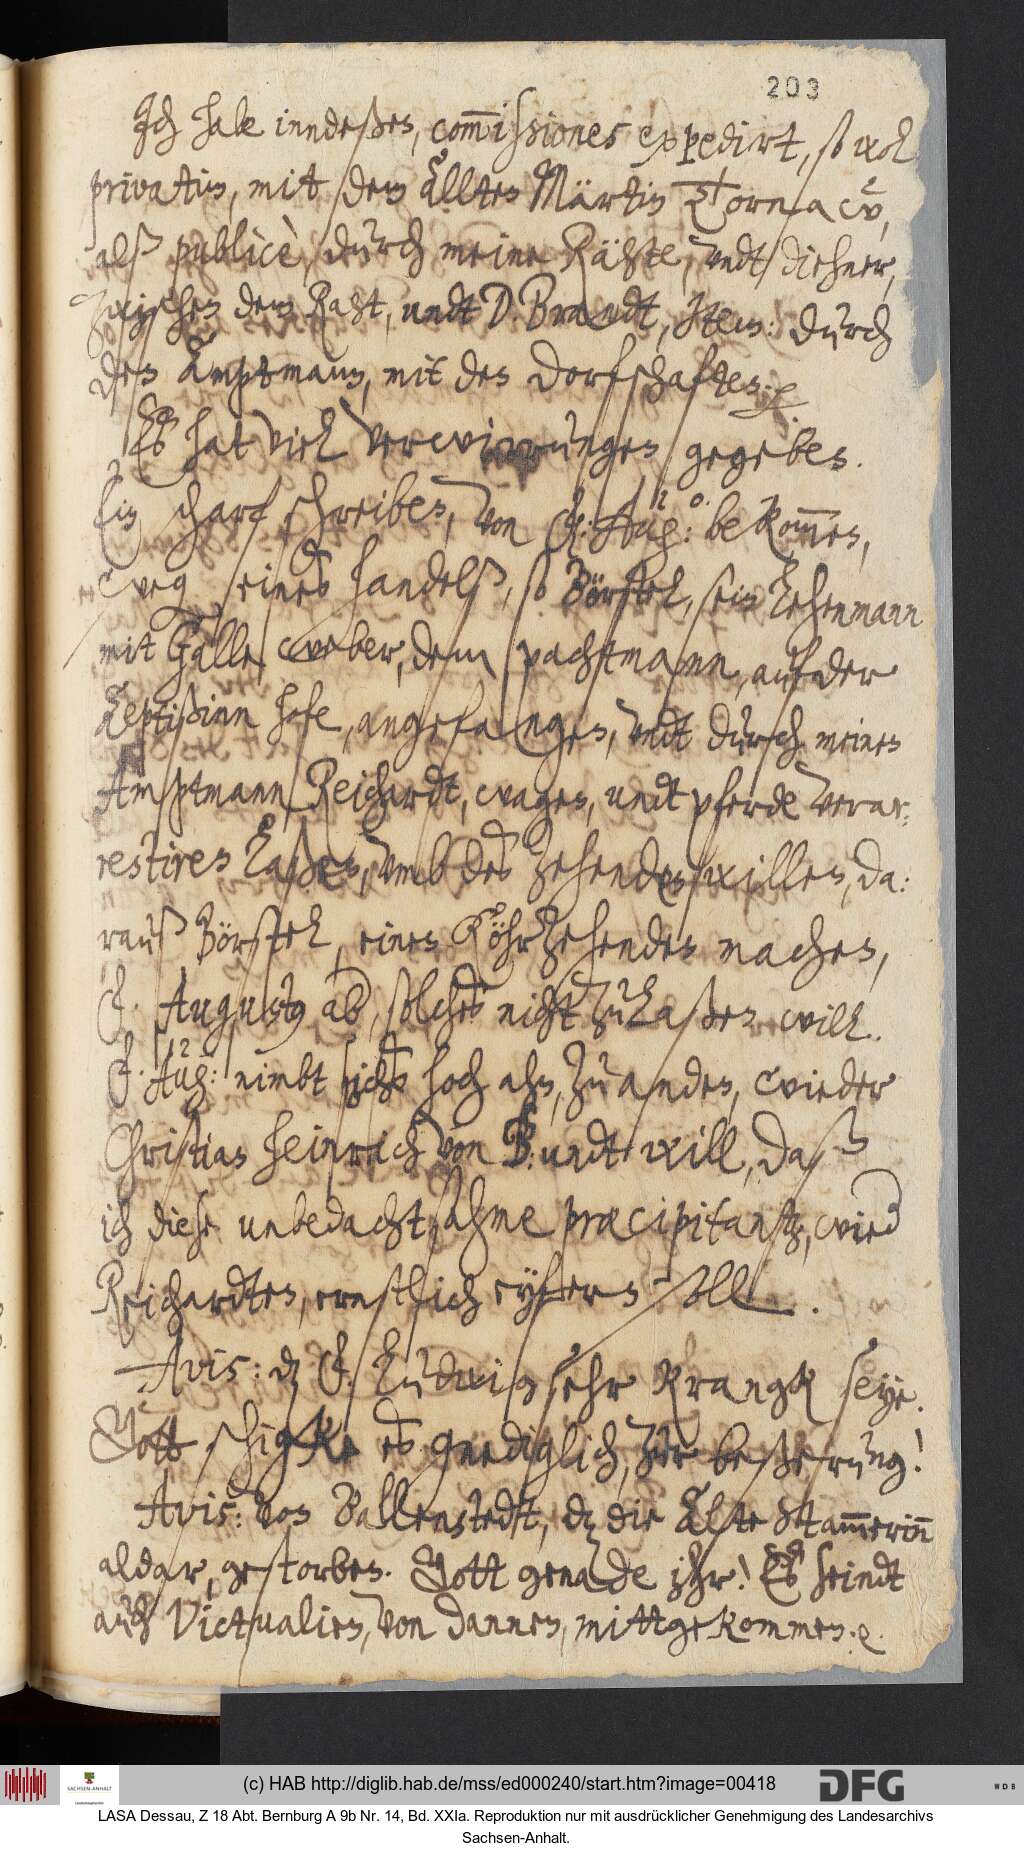 203
Ich habe inndeßen, com̄issiones expedirt, so wol
privatim, mit dem Älltern Märtin Tornacv,
alß publicè, durch meine Rähte, undt diehner,
Zwischen dem Raht, undt D. Brandt, Item: durch
den Amptmann, mit den dorfschaften. &
Es hat viel verwirrungen gegeben.
Ein scharf schreiben, von F. Aug: bekom̄en,
weg. eines handelß, so Börstel, sein Lehenmann
mit Galle weber, dem pachtmann, auf der
Äeptißinn hofe, angefangen, undt durch meinen
Amptmann Reichardt, wagen, undt pferde verar¦
restiren laßen, umb des Zehenden willen, da¦
rauß Börstel, einen RöhrZehenden machen,
F. Augustus ab., solches nicht Zulaßen will.
F. Aug: nimbt sichs hoch ahn, Zu anden, wieder
Christian Heinrich von B. undt will, daß
ich diese unbedachtsahme præcipitantz, wied
Reichardten, ernstlich eyfern soll.
Avis: dz F. Ludwig sehr krangk seye.
Gott schigke es gnediglich, zur beßerung!
Avis: von Ballenstedt, dz die Alte Stam̄erin̄
aldar, gestorben. Gott genade ihr! Es seindt
auch Victualien, von dannen, mittgekommen. &.
(c) HAB http://diglib.hab.de/mss/ed000240/start.htm?image=00418
SACHSEN-ANHALT
DFG
WDB
LASA Dessau, Z 18 Abt. Bernburg A 9b Nr. 14, Bd. XXIa. Reproduktion nur mit ausdrücklicher Genehmigung des Landesarchivs
Sachsen-Anhalt.